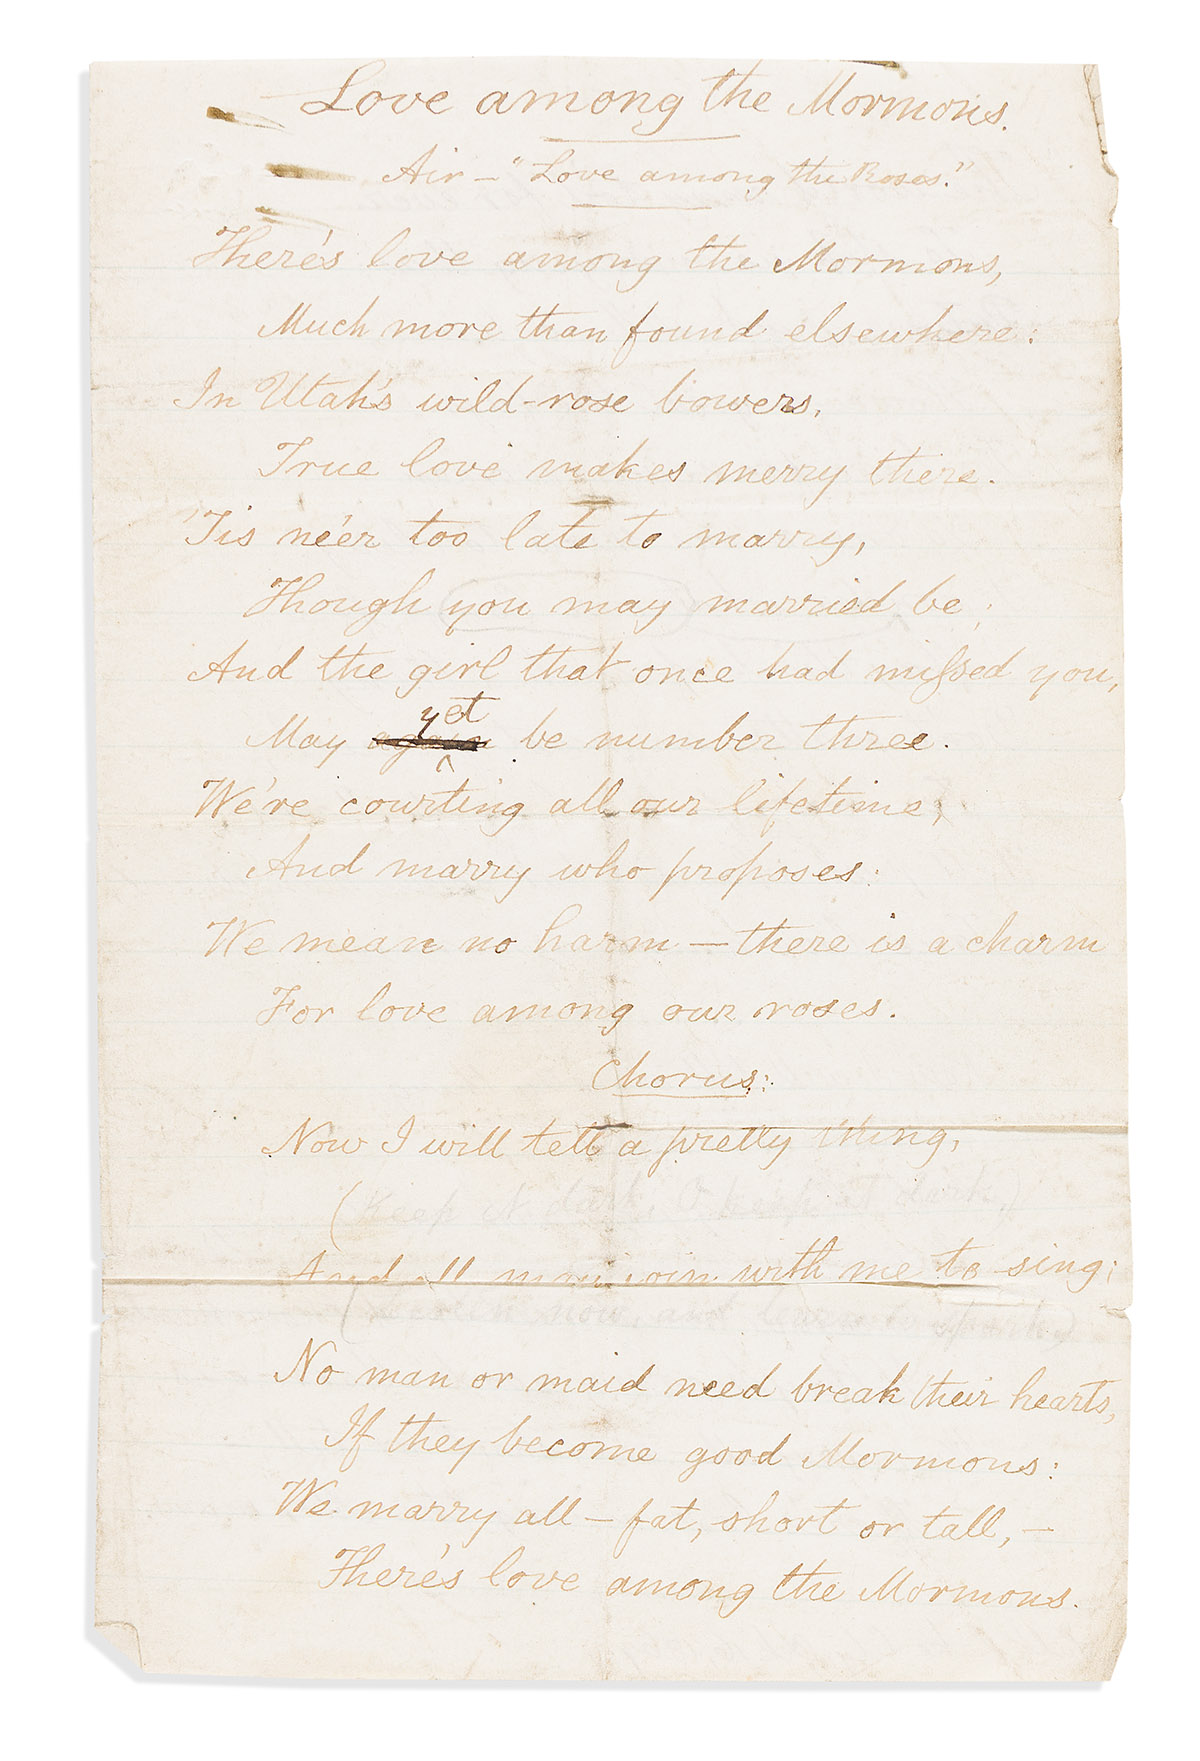 Love among the Mormons.
Air — "Love among the Roses."
There's love among the Mormons,
Much more than found elsewhere:
In Utah's wild-rose bowers,
True love makes merry there.
'Tis ne'er too late to marry,
Though you may married be;
And the girl that once had missed you,
yet
May again be number three.
We're courting all our lifetime,
And marry who proposes:
We mean no harm — there is a charm
For love among our roses.
Chorus:
Now I will tell a pretty thing,
(Keep it dark, O keep it dark,)
And all may join with me to sing;
now, and learn to spark)
No man or maid need break their hearts,
If they become good Mormons:
We marry all — fat, short or tall, —
There's love among the Mormons.